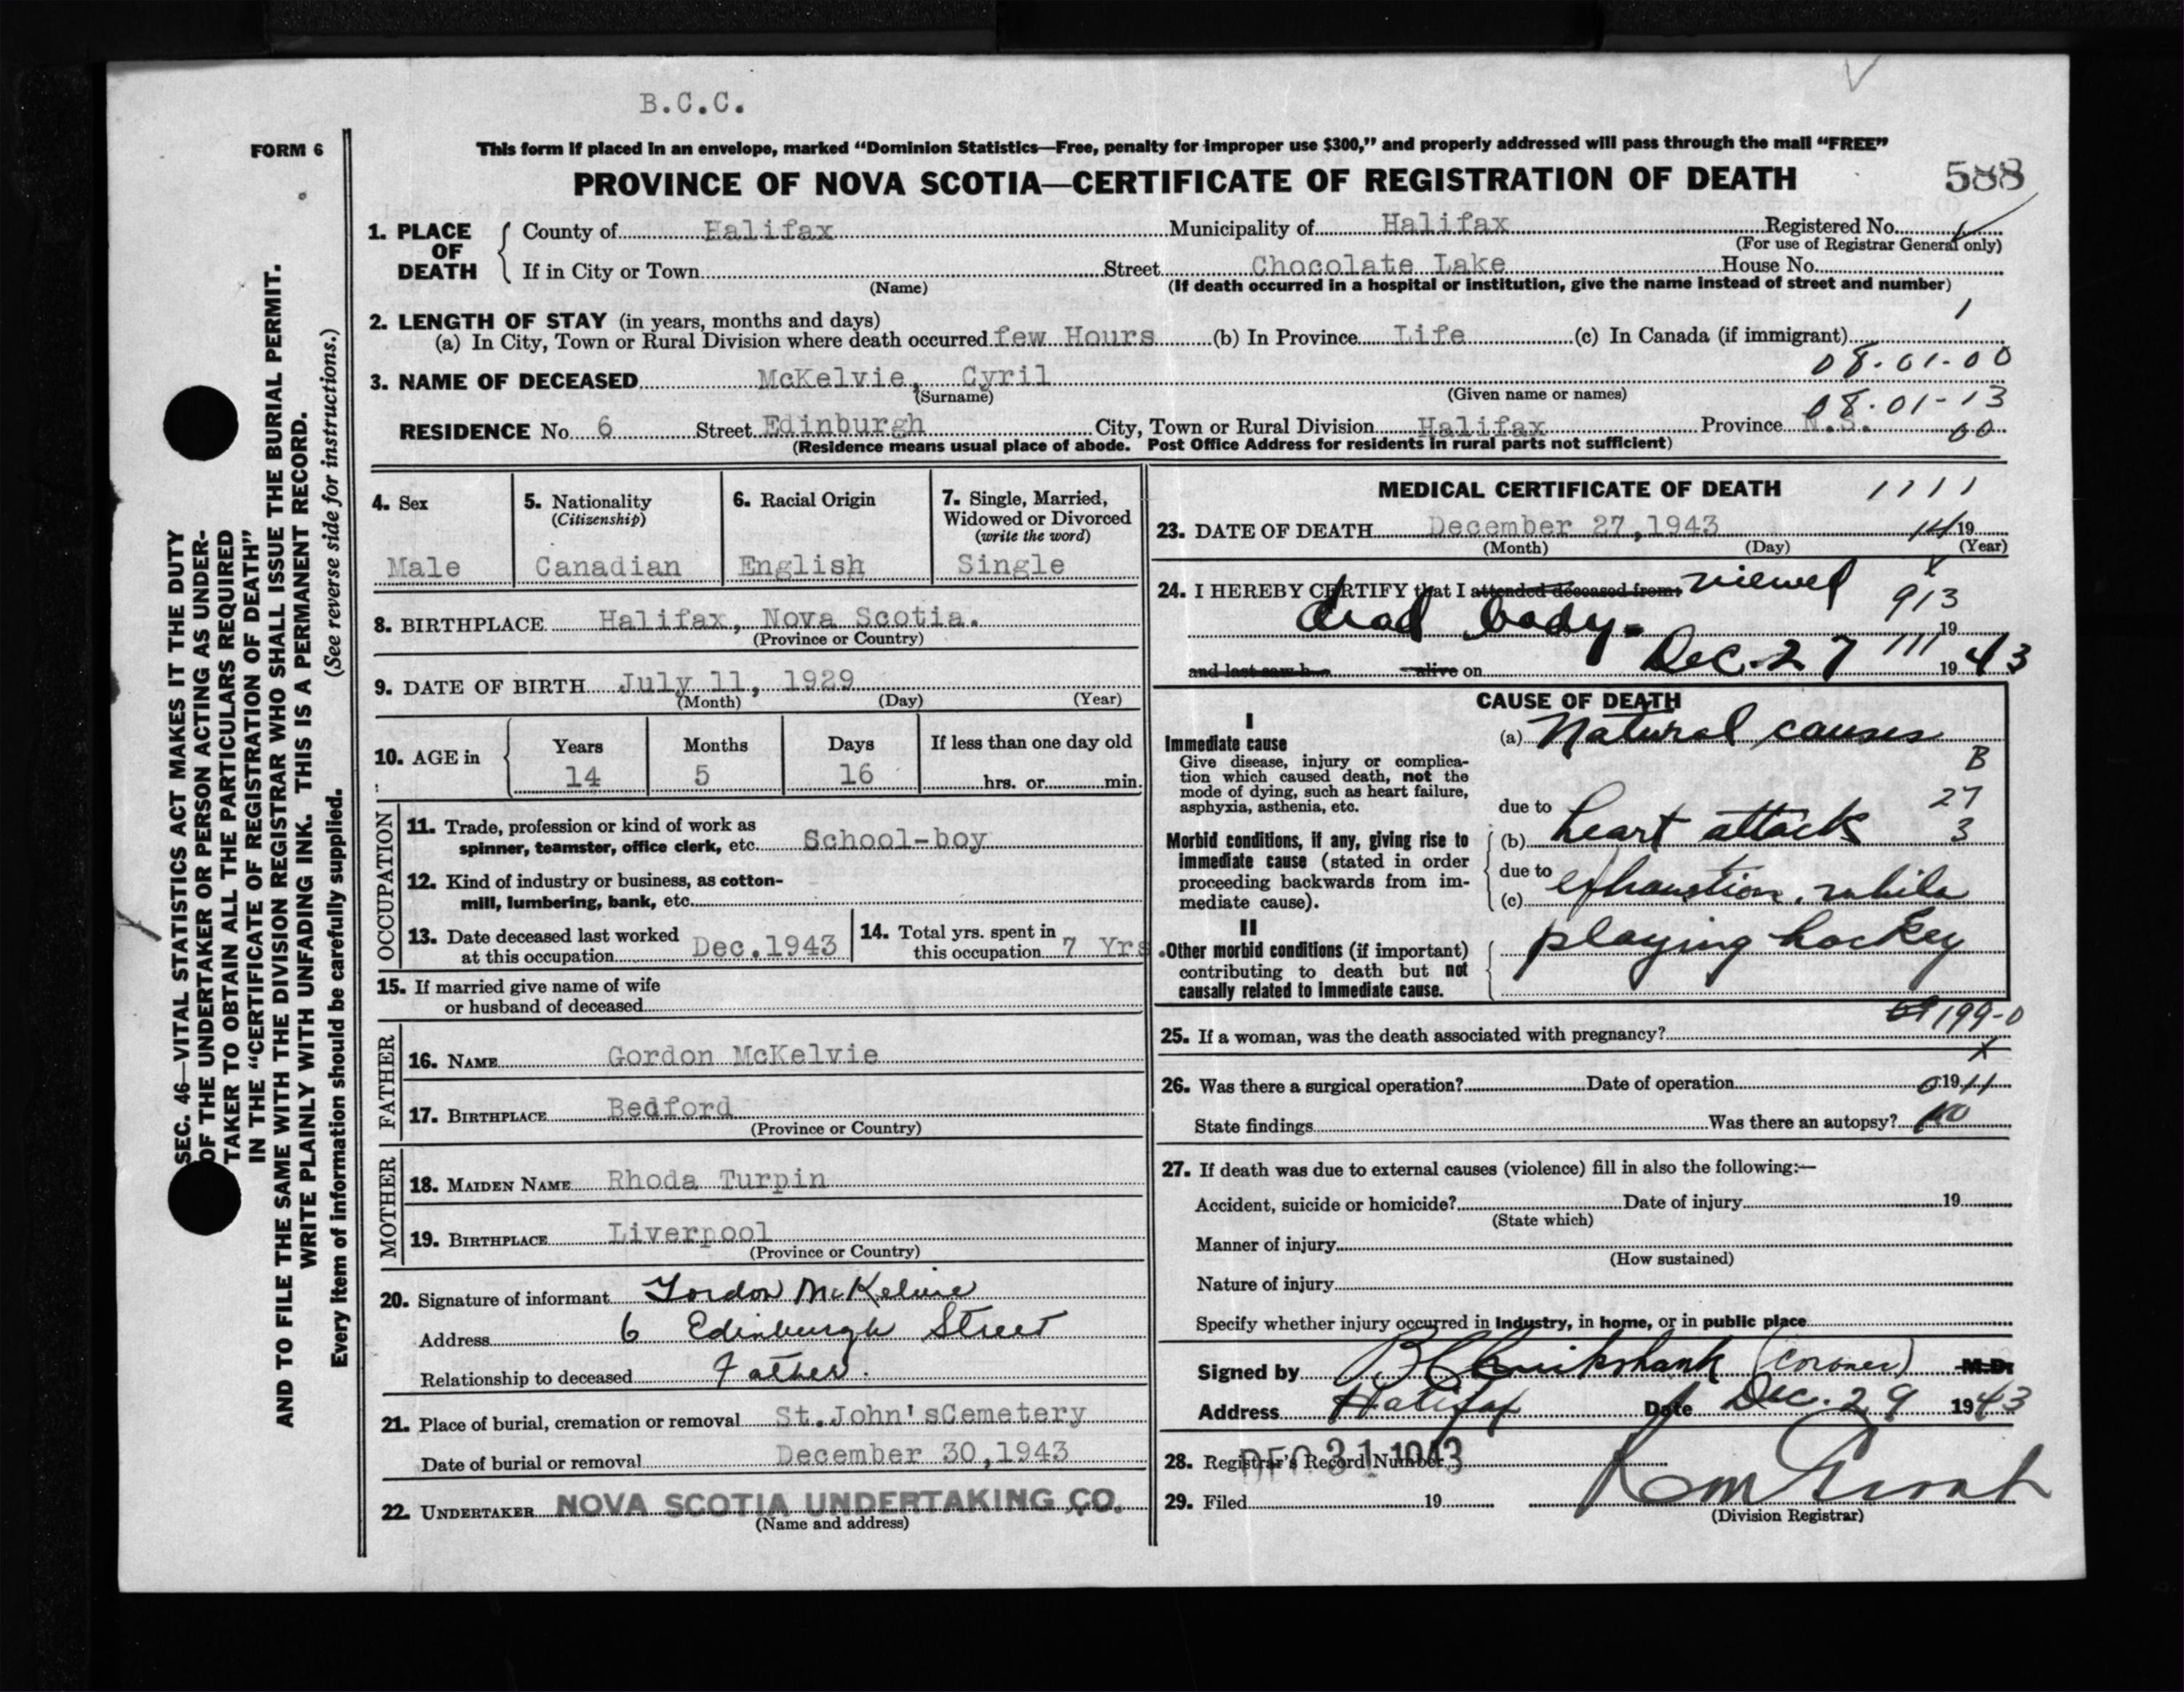 B.C.C.
FORM 6
This form if placed in an envelope, marked “Dominion Statistics—Free, penalty for improper use $300,” and properly addressed will pass through the mail “FREE”
PROVINCE OF NOVA SCOTIA—CERTIFICATE OF REGISTRATION OF DEATH 588
1. PLACE OF DEATH County of Halifax Municipality of Halifax Registered No.
(For use of Registrar General only)
If in City or Town Street Chocolate Lake House No.
(Name) (If death occurred in a hospital or institution, give the name instead of street and number)
1
2. LENGTH OF STAY (in years, months and days)
(a) In City, Town or Rural Division where death occurred few Hours (b) In Province Life (c) In Canada (if immigrant)
08.01-00
3. NAME OF DECEASED McKelvie, Cyril
(Surname) (Given name or names)
08.01-13
RESIDENCE No. 6 Street Edinburgh City, Town or Rural Division Halifax Province N.S. 00
(Residence means usual place of abode. Post Office Address for residents in rural parts not sufficient)
4. Sex
Male
5. Nationality
(Citizenship)
Canadian
6. Racial Origin
English
7. Single, Married,
Widowed or Divorced
(write the word)
Single
8. BIRTHPLACE Halifax, Nova Scotia.
(Province or Country)
9. DATE OF BIRTH July 11, 1929
(Month) (Day) (Year)
10. AGE in Years Months Days If less than one day old
14 5 16 hrs. or min.
OCCUPATION
11. Trade, profession or kind of work as
spinner, teamster, office clerk, etc. School-boy
12. Kind of industry or business, as cotton-
mill, lumbering, bank, etc.
13. Date deceased last worked
at this occupation Dec.1943
14. Total yrs. spent in
this occupation 7 Yrs
15. If married give name of wife
or husband of deceased
FATHER
16. NAME Gordon McKelvie
17. BIRTHPLACE Bedford
(Province or Country)
MOTHER
18. MAIDEN NAME Rhoda Turpin
19. BIRTHPLACE Liverpool
(Province or Country)
20. Signature of informant Gordon McKelvie
Address 6 Edinburgh Street
Relationship to deceased Father.
21. Place of burial, cremation or removal St.John'sCemetery
Date of burial or removal December 30,1943
22. UNDERTAKER NOVA SCOTIA UNDERTAKING CO.
(Name and address)
MEDICAL CERTIFICATE OF DEATH 1111
23. DATE OF DEATH December 27,1943 14 19
(Month) (Day) (Year)
24. I HEREBY CERTIFY that I attended deceased from: viewed
913
dead body. 19
and last saw h alive on Dec. 27 111 1943
CAUSE OF DEATH
I
Immediate cause
Give disease, injury or complica-
tion which caused death, not the
mode of dying, such as heart failure,
asphyxia, asthenia, etc.
(a) Natural causes
B
27
due to
Morbid conditions, if any, giving rise to
immediate cause (stated in order
proceeding backwards from im-
mediate cause).
(b) heart attack 3
due to
(c) exhaustion, while
II
Other morbid conditions (if important)
contributing to death but not
causally related to immediate cause.
playing hockey
199-0
25. If a woman, was the death associated with pregnancy?
X
26. Was there a surgical operation? Date of operation 0 19 11
State findings Was there an autopsy? No
27. If death was due to external causes (violence) fill in also the following:—
Accident, suicide or homicide? Date of injury 19
(State which)
Manner of injury
(How sustained)
Nature of injury
Specify whether injury occurred in Industry, in home, or in public place
Signed by Cruikshank (coroner) M.D.
Address Halifax Date Dec. 29 1943
28. Registrar's Record Number
DEC 31 1943
29. Filed 19
(Division Registrar)
SEC. 46—VITAL STATISTICS ACT MAKES IT THE DUTY
OF THE UNDERTAKER OR PERSON ACTING AS UNDER-
TAKER TO OBTAIN ALL THE PARTICULARS REQUIRED
IN THE “CERTIFICATE OF REGISTRATION OF DEATH”
AND TO FILE THE SAME WITH THE DIVISION REGISTRAR WHO SHALL ISSUE THE BURIAL PERMIT.
WRITE PLAINLY WITH UNFADING INK. THIS IS A PERMANENT RECORD.
Every item of information should be carefully supplied. (See reverse side for instructions.)